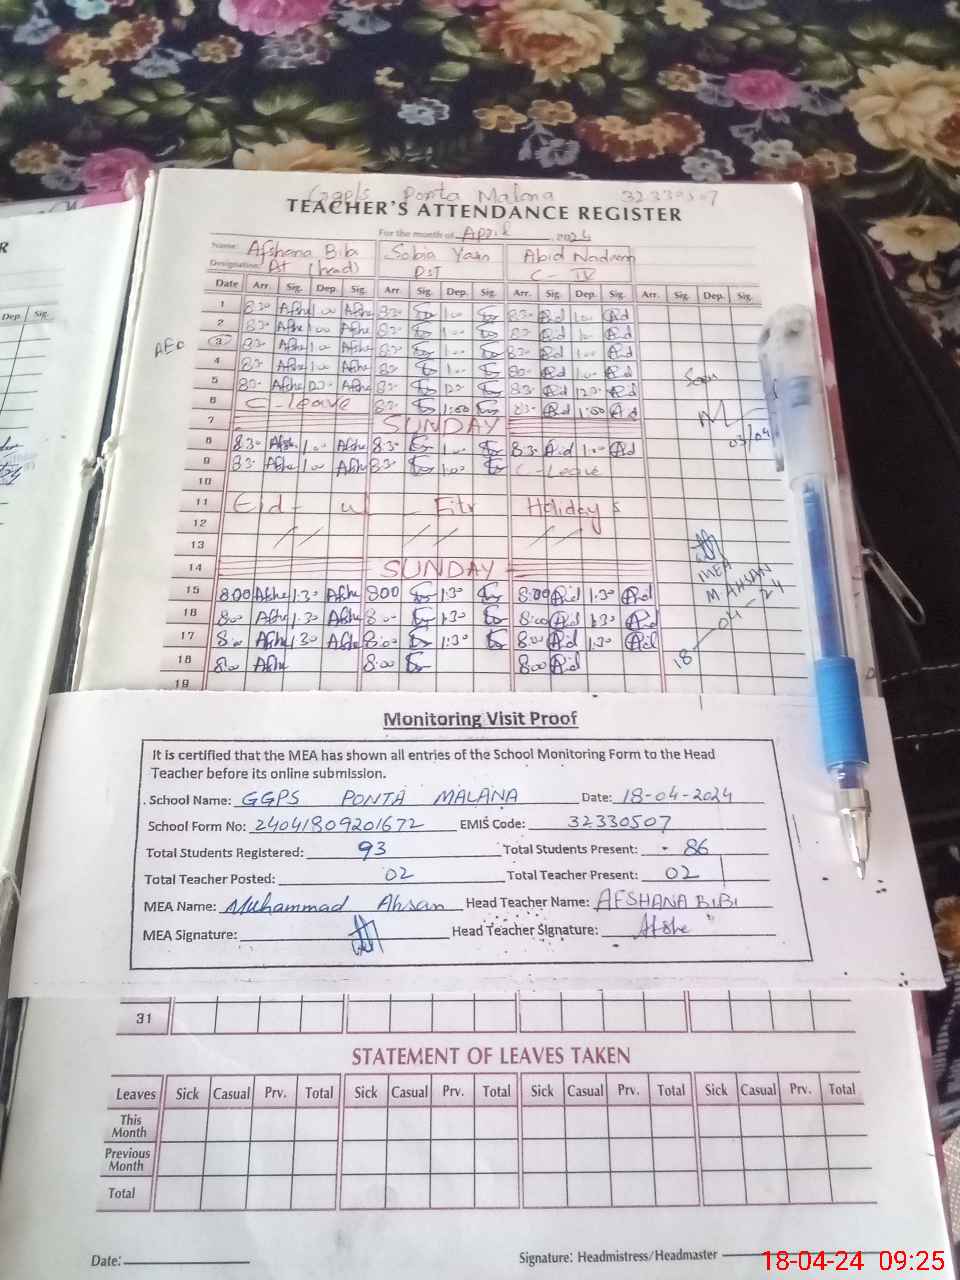 Ggpls Ponta Malana 32330507
TEACHER'S ATTENDANCE REGISTER
For the month of April 2024
Name: Afshana Bibi Sobia Yasn Abid Nadeem
Designation: At (head) PST C - IV
Date Arr. Sig. Dep. Sig. Arr. Sig. Dep. Sig. Arr. Sig. Dep. Sig. Arr. Sig. Dep. Sig.
Dep. Sig.
R
1 8.30 Afshe 1.00 Afshe 8.30 1.00 8.30 Abid 1.00 Abid
2 8.30 Afshe 1.00 Afshe 8.30 1.00 8.30 Abid 1.00 Abid
AEO 3 8.30 Afshe 1.00 Afshe 8.30 1.00 8.30 Abid 1.00 Abid
4 8.30 Afshe 1.00 Afshe 8.30 1.00 8.30 Abid 1.00 Abid
5 8.30 Afshe 12.30 Afshe 8.30 12.30 8.30 Abid 12.30 Abid
6 C-leave 8.30 1:00 8.30 Abid 1:00 Abid
7 SUNDAY
03/04
8 8.30 Afshe 1.00 Afshe 8.30 1.00 8.30 Abid 1.00 Abid
9 8.30 Afshe 1.00 Afshe 8.30 1.00 C-Leave
10
11 Eid - ul - Fitr Holidays
12
13 // // //
14 SUNDAY
MEA
M. AHSAN
18-04-24
15 8.00 Afshe 1.30 Afshe 8.00 1.30 8.00 Abid 1.30 Abid
16 8.00 Afshe 1.30 Afshe 8.00 1.30 8.00 Abid 1.30 Abid
17 8.00 Afshe 1.30 Afshe 8.00 1.30 8.00 Abid 1.30 Abid
18 8.00 Afshe 8.00 8.00 Abid
19
Monitoring Visit Proof
It is certified that the MEA has shown all entries of the School Monitoring Form to the Head
Teacher before its online submission.
School Name: GGPS PONTA MALANA Date: 18-04-2024
School Form No: 24041809201672 EMIS Code: 32330507
Total Students Registered: 93 Total Students Present: 86
Total Teacher Posted: 02 Total Teacher Present: 02
MEA Name: Muhammad Ahsan Head Teacher Name: AFSHANA BIBI
MEA Signature: Head Teacher Signature: Afshe
31
STATEMENT OF LEAVES TAKEN
Leaves Sick Casual Prv. Total Sick Casual Prv. Total Sick Casual Prv. Total Sick Casual Prv. Total
This Month
Previous Month
Total
Date: Signature: Headmistress/Headmaster
18-04-24 09:25